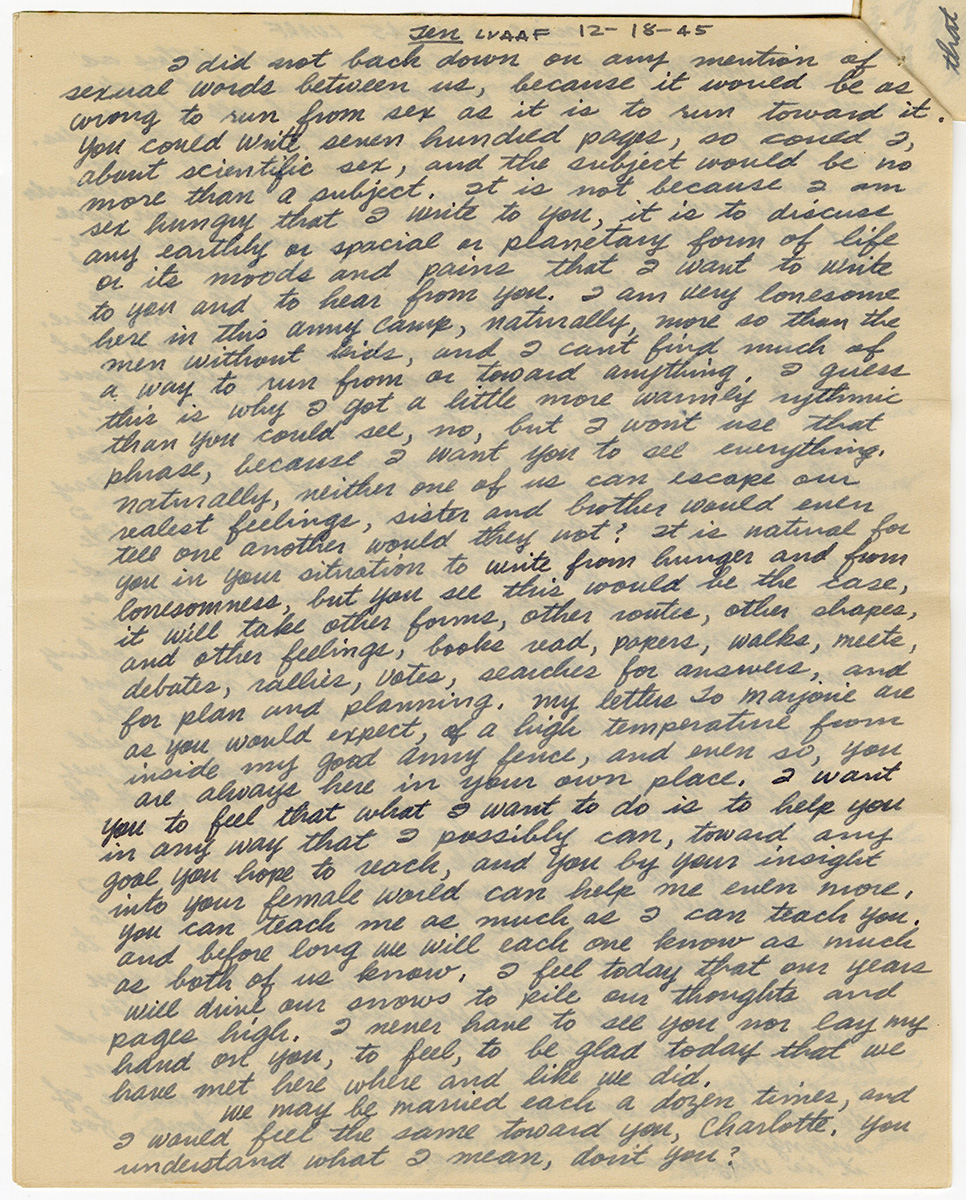 Ten LVAAF 12-18-45
that
I did not back down on any mention of
sexual words between us, because it would be as
wrong to run from sex as it is to run toward it.
You could write seven hundred pages, so could I,
about scientific sex, and the subject would be no
more than a subject. It is not because I am
sex hungry that I write to you, it is to discuss
any earthly or spacial or planetary form of life
or its moods and pains that I want to write
to you and to hear from you. I am very lonesome
here in this army camp, naturally, more so than the
men without kids, and I cant find much of
a way to run from or toward anything. I guess
this is why I got a little more warmly rythmic
than you could see, no, but I wont use that
phrase, because I want you to see everything.
naturally, neither one of us can escape our
realest feelings, sister and brother would even
tell one another would they not? It is natural for
you in your situation to write from hunger and from
lonesomness, but you see this would be the case,
it will take other forms, other routes, other shapes,
and other feelings, books read, papers, walks, meets,
debates, rallies, votes, searches for answers, and
for plan and planning. my letters to Marjorie are
as you would expect, of a high temperature from
inside my good army fence, and even so, you
are always here in your own place. I want
you to feel that what I want to do is to help you
in any way that I possibly can, toward any
goal you hope to reach, and you by your insight
into your female world can help me even more,
you can teach me as much as I can teach you.
and before long we will each one know as much
as both of us know. I feel today that our years
will drive our snows to pile our thoughts and
pages high. I never have to see you nor lay my
hand on you, to feel, to be glad today that we
have met here where and like we did.
we may be married each a dozen times, and
I would feel the same toward you, Charlotte. You
understand what I mean, don't you?